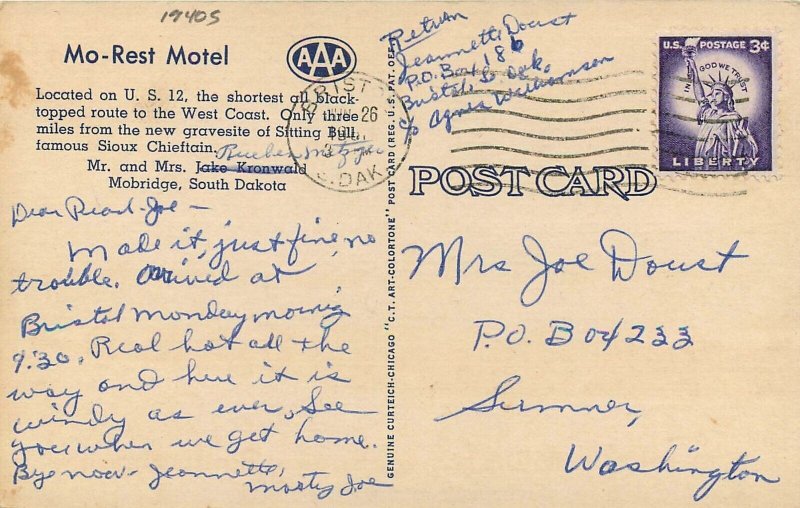 1940s
Mo-Rest Motel
AAA
Located on U. S. 12, the shortest all black-
topped route to the West Coast. Only three
miles from the new gravesite of Sitting Bull,
famous Sioux Chieftain.
Mr. and Mrs. Jake Kronwald
Mobridge, South Dakota
Dear Pearl-Joe -
Made it just fine, no
trouble. Arrived at
Bristol Monday morning
9:30. Real hot all the
way and here it is
windy as ever. See
you when we get home.
Bye now - Jeannette,
Morty Joe
GENUINE CURTEICH-CHICAGO "C.T. ART-COLORTONE" POST CARD (REG. U.S. PAT. OFF.)
Return
Jeannette Doust
P.O. Box 186
Bristol, S. Dak.
c/o Agnes Williamson
BRISTOL
26
S. DAK.
U.S. POSTAGE 3¢
IN GOD WE TRUST
LIBERTY
POST CARD
Mrs Joe Doust
P.O. Box 233
Sumner,
Washington